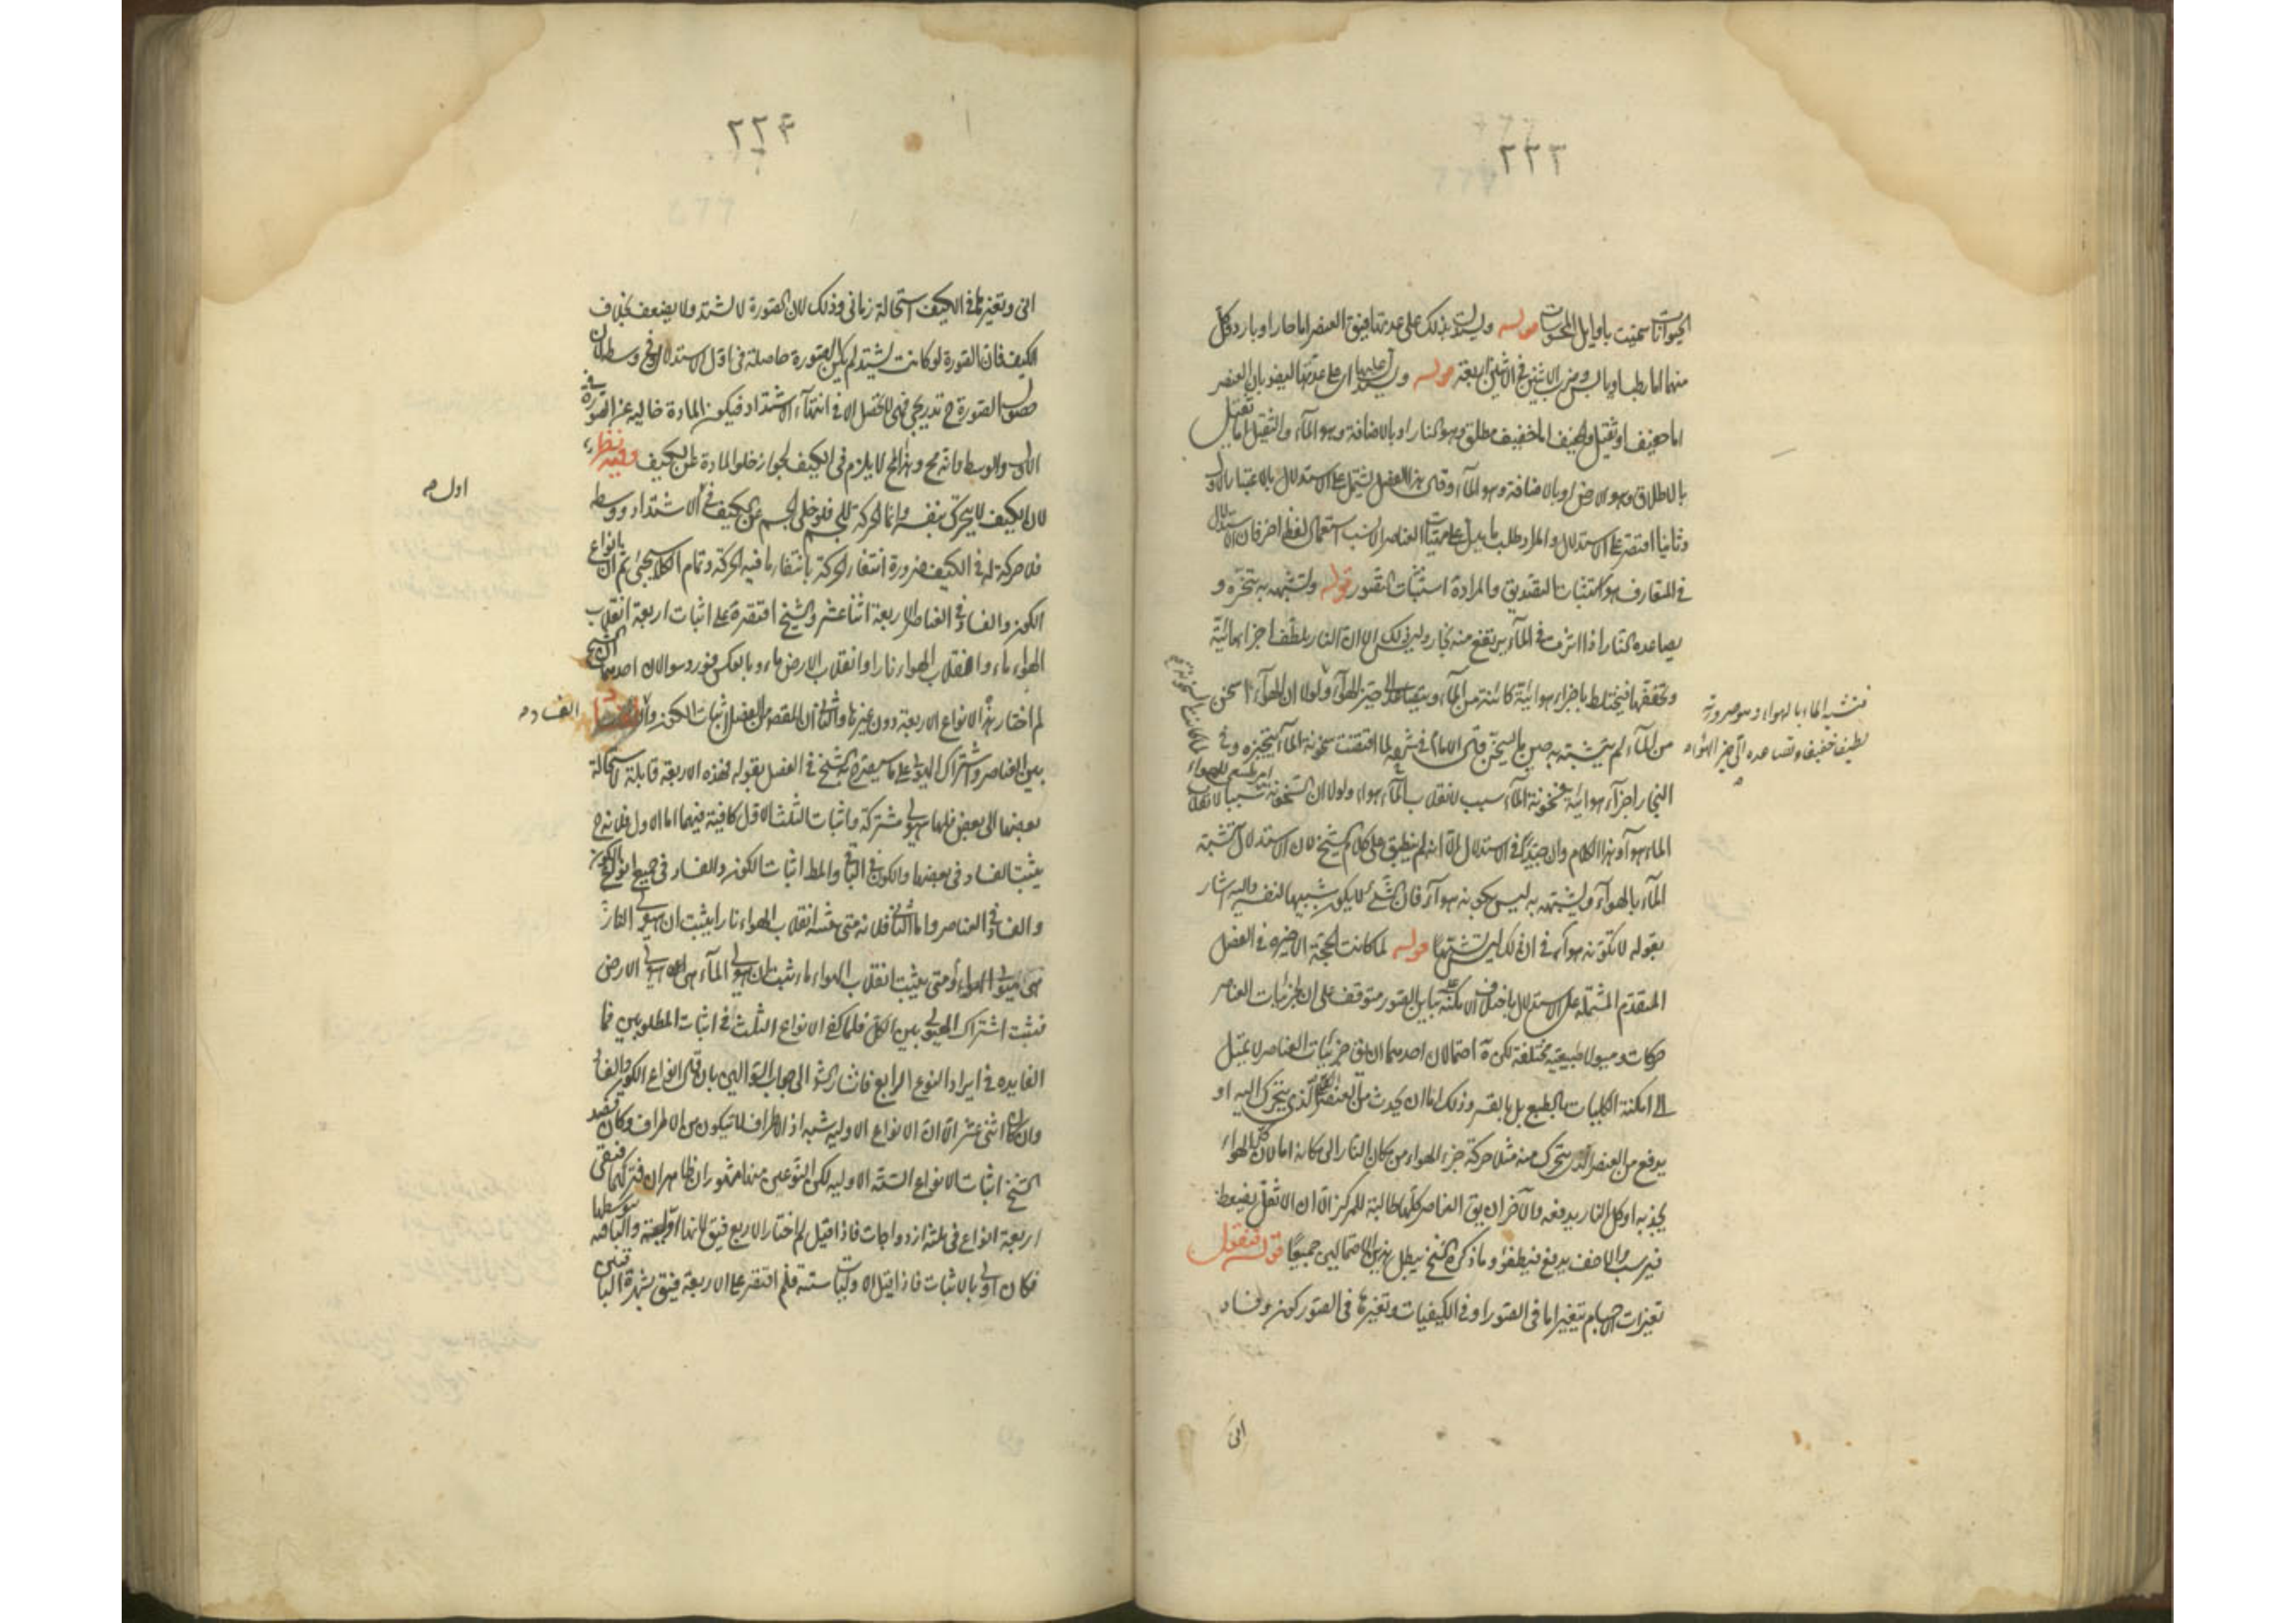 ٢٢٣
الحيوانات سميت باوايل المحسوسات قوله وليستدل بذلك على عدتها فيق العنصر اما حار او بارد وكل
منهما اما رطب او يابس وضرب الاثنين في الاثنين اربعة قوله وليستدل ايضا على عدتها ايضو بان العنصر
اما خفيف او ثقيل والخفيف اما خفيف مطلق وهو النار او بالاضافة وهو الهواء والثقيل اما ثقيل
بالاطلاق وهو الارض او بالاضافة وهو الماء وقال هذا الفصل يشتمل على الاستدلال بالاعتبار الاول
وثانيا اقتصر على الاستدلال والمراد طلب ما يدل على العناصر لانسب استعمال لفظ اخر فان الاستدلال
في المتعارف هو استثبات التصديق والمراد استثبات التصور قوله وتشبهه به بتبخره و
تصاعده النار اذا اثرت في الماء يرتفع منه بخار وليس ذلك الا ان النار يلطف اجزاء مائية
وتخففها فيختلط باجزاء هوائية كائنة من الماء ويتصاعد الى حيز الهواء ولولا ان الهواء اسخن
من الماء لم يتشبه به حين ما يسخن قال الامام في شرحه لما اقتضت سخونة الماء تبخيره وفي
البخار اجزاء هوائية فسخونة الماء سبب لانقلاب الماء هواء ولولا ان السخونة سببا لانقلاب
الماء هواء وهذا الكلام وان جيدا في الاستدلال الا انه لم ينطبق على كلام الشيخ لان الاستدلال تشبه
الماء بالهواء وليشبهه به ليس بكونه هواء فان الشيء لا يكون شبيها لنفسه واليه اشار
بقوله لا تكونه هواء في ان ذلك ليس تشبها قوله لما كانت الحجة الاخيرة في الفصل
المتقدم المشتملة على الاستدلال باختلاف الامكنة على تباين الصور متوقف على ان لجزئيات العناصر
حركات وميولا طبيعية مختلفة لكن ة احتمالان احدهما ان يق جزئيات العناصر لا يميل
الى امكنة الكليات بالطبع بل بالقسر وذلك اما ان يحدث من العنصر الكلي الذي يتحرك اليه او
يدفع من العنصر الذي يتحرك منه مثلا حركة جزء الهواء من مكان النار الى مكانه اما لان كل الهواء
يجذبه او كل النار يدفعه والآخر ان يق العناصر كلها طالبة للمركز الا ان الاثقل يضغط
فيرسب والاخف يدفع فيطفو وما ذكره الشيخ يبطل هذين الاحتمالين جميعا قوله فنقول
تغيرات الاجسام بتغير اما في الصور او في الكيفيات وتغيرها في الصور كون وفساد
انى
فتشبه الماء بالهواء وهو صيرورته
لطيفا خفيفا وتصاعده الى حيز الهواء
٢٢٤
انى وتغيرها في الكيف استحالة زمانى وذلك لان الصورة لا تشتد ولا يضعف بخلاف
الكيف فان الصورة لو كانت تشتد لم يكن الصورة حاصلة في اول الاشتداد وفي وسطه لان
حصول الصورة ح تدريجي فهي لا تحصل الا في انتهاء الاشتداد فيكون المادة خاليه عن الصورة في
الاول والوسط وانه مح وهذا المح لا يلزم في الكيف لجواز خلو المادة عن الكيف وفيه نظر
لان الكيف لا يتحرك بنفسه وانما الحركة للجسم فلو خلى الجسم عن الكيف في الاشتداد ووسطه
فلا حركة له في الكيف ضرورة انتفاء الحركة بانتفاء ما فيه الحركة وتمام الكلام سيجئ ثم ان انواع
الكون والفساد في العناصر الاربعة اثنا عشر والشيخ اقتصر على اثبات اربعة انقلاب
الهواء ماء وانقلاب الهواء نارا وانقلاب الارض ماء وبالعكس فورد سوالان احدهما ان الشيخ
لم اختار هذا الانواع الاربعة دون غيرها والثانى ان المقصد من الفصل اثبات الكون و
بين العناصر واشتراك الهيولى على ما سيصرح به الشيخ في الفصل بقوله فهذه الاربعة قابلة لاستحالة
بعضها الى بعض فلها هيولى مشتركة واثبات الثلث الاول كافية فيهما اما الاول فلانه ح
يثبت الفساد في بعضها والكون في الباقى والمط اثبات الكون والفساد في جميع انواع الكون
والفساد في العناصر واما الثانى فلانه متى ثبت انقلاب الهواء نارا يثبت ان هيولى النار
هى هيولى الهواء ومتى يثبت انقلاب الهواء ماء ثبت ان هيولى الماء هى هيولى الارض
فثبت اشتراك الهيولى بين الكل فلما كفى الانواع الثلث في اثبات المطلوبين فما
الفايده في ايراد النوع الرابع فاشار الش الى جواب السؤالين بان قال انواع الكون والفساد
وان كان اثنى عشر الا ان الانواع الاوليه ستة اذ الاطراف لا يتكون من الاطراف وكان قصد
الشيخ اثبات الانواع الستة الاوليه لكن النوعين منها مشهوران ظاهران فتركهما فبقى
اربعة انواع في ثلثة ازدواجات فاذا قيل لم اختار الاربع فيق لانها اوليه والباقيه بتوسطها
فكان اولى بالاثبات فاذا قيل الاوليات ستة فلم اقتصر على الاربعة فيق لشهرة الباقيتين
اول م
الفساد م